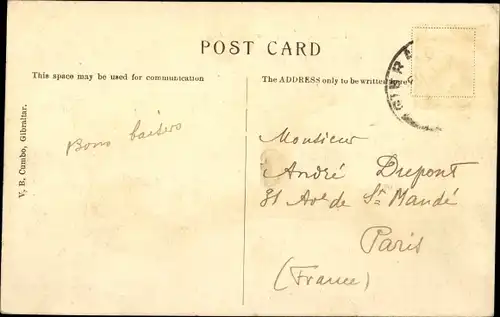 POST CARD
This space may be used for communication
The ADDRESS only to be written here
V. B. Cumbo, Gibraltar.
Bons baisers
Monsieur
André Dupont
81 Av. de St Mandé
Paris
(France)